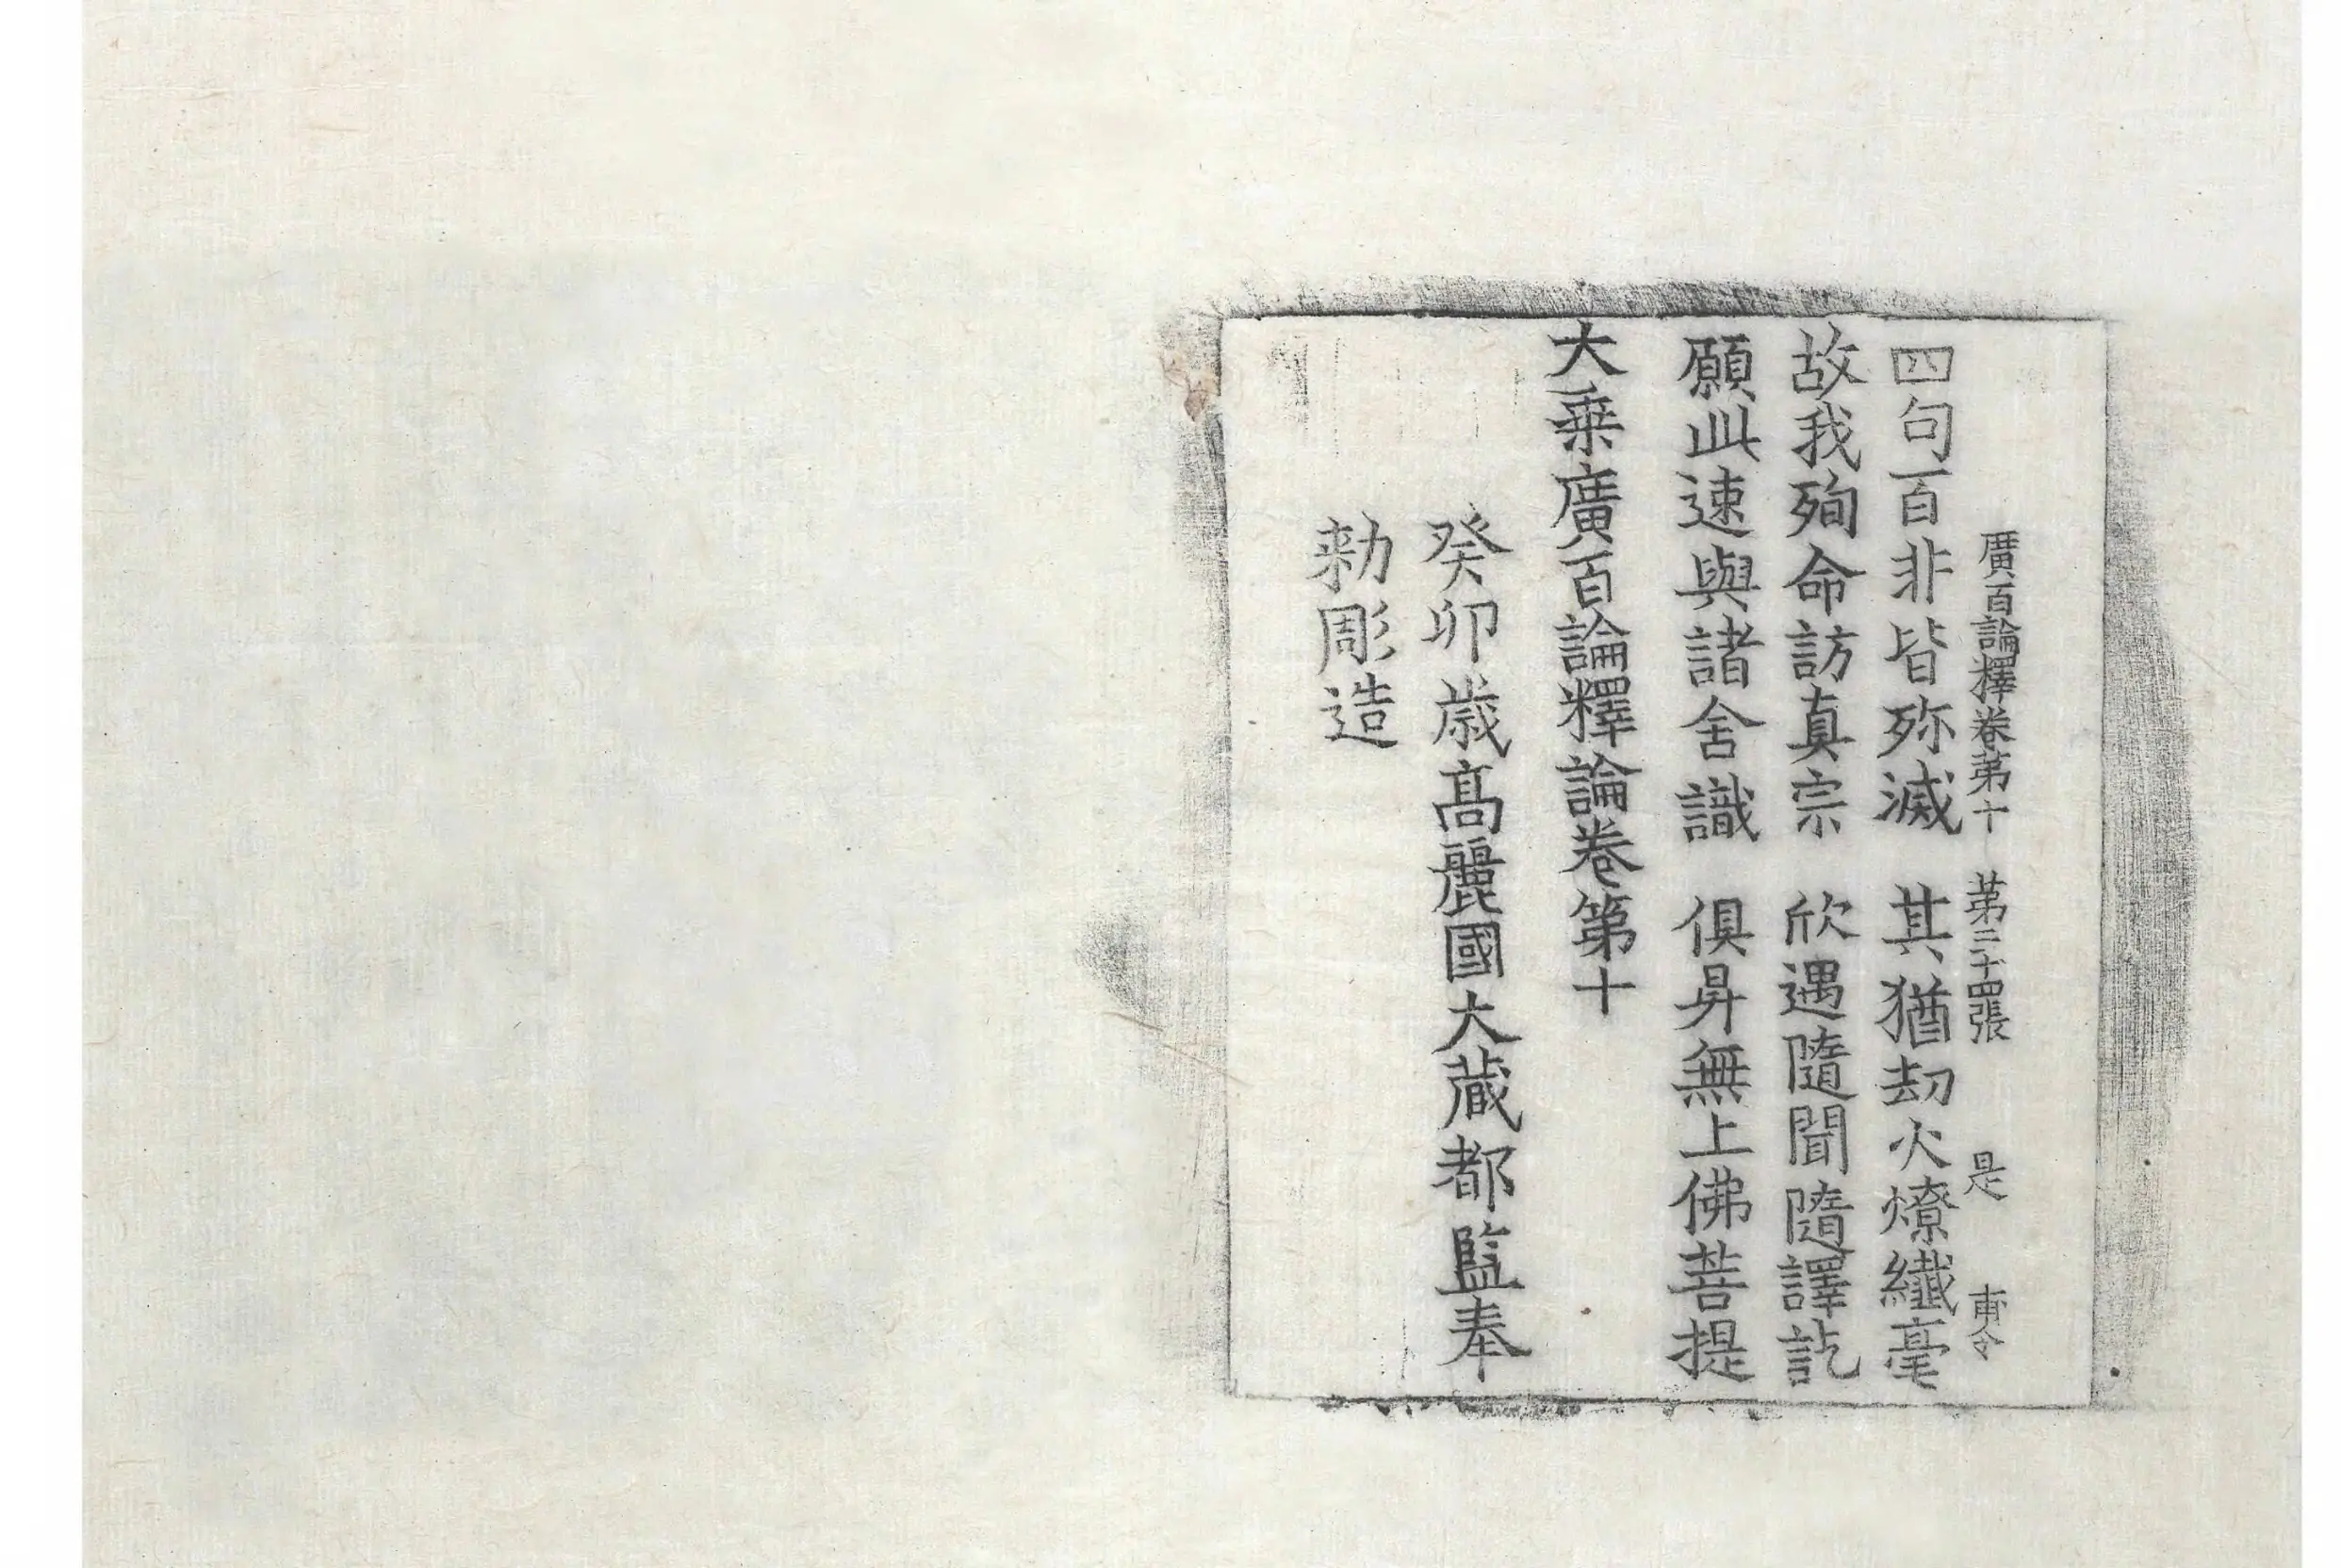 廣百論釋卷第十 第三十四張 是
四句百非皆殄滅 其猶劫火燎纖毫
故我殉命訪真宗 欣遇隨聞隨譯訖
願此速與諸含識 俱昇無上佛菩提
大乗廣百論釋論卷第十
癸卯歲高麗國大藏都監奉
勑彫造